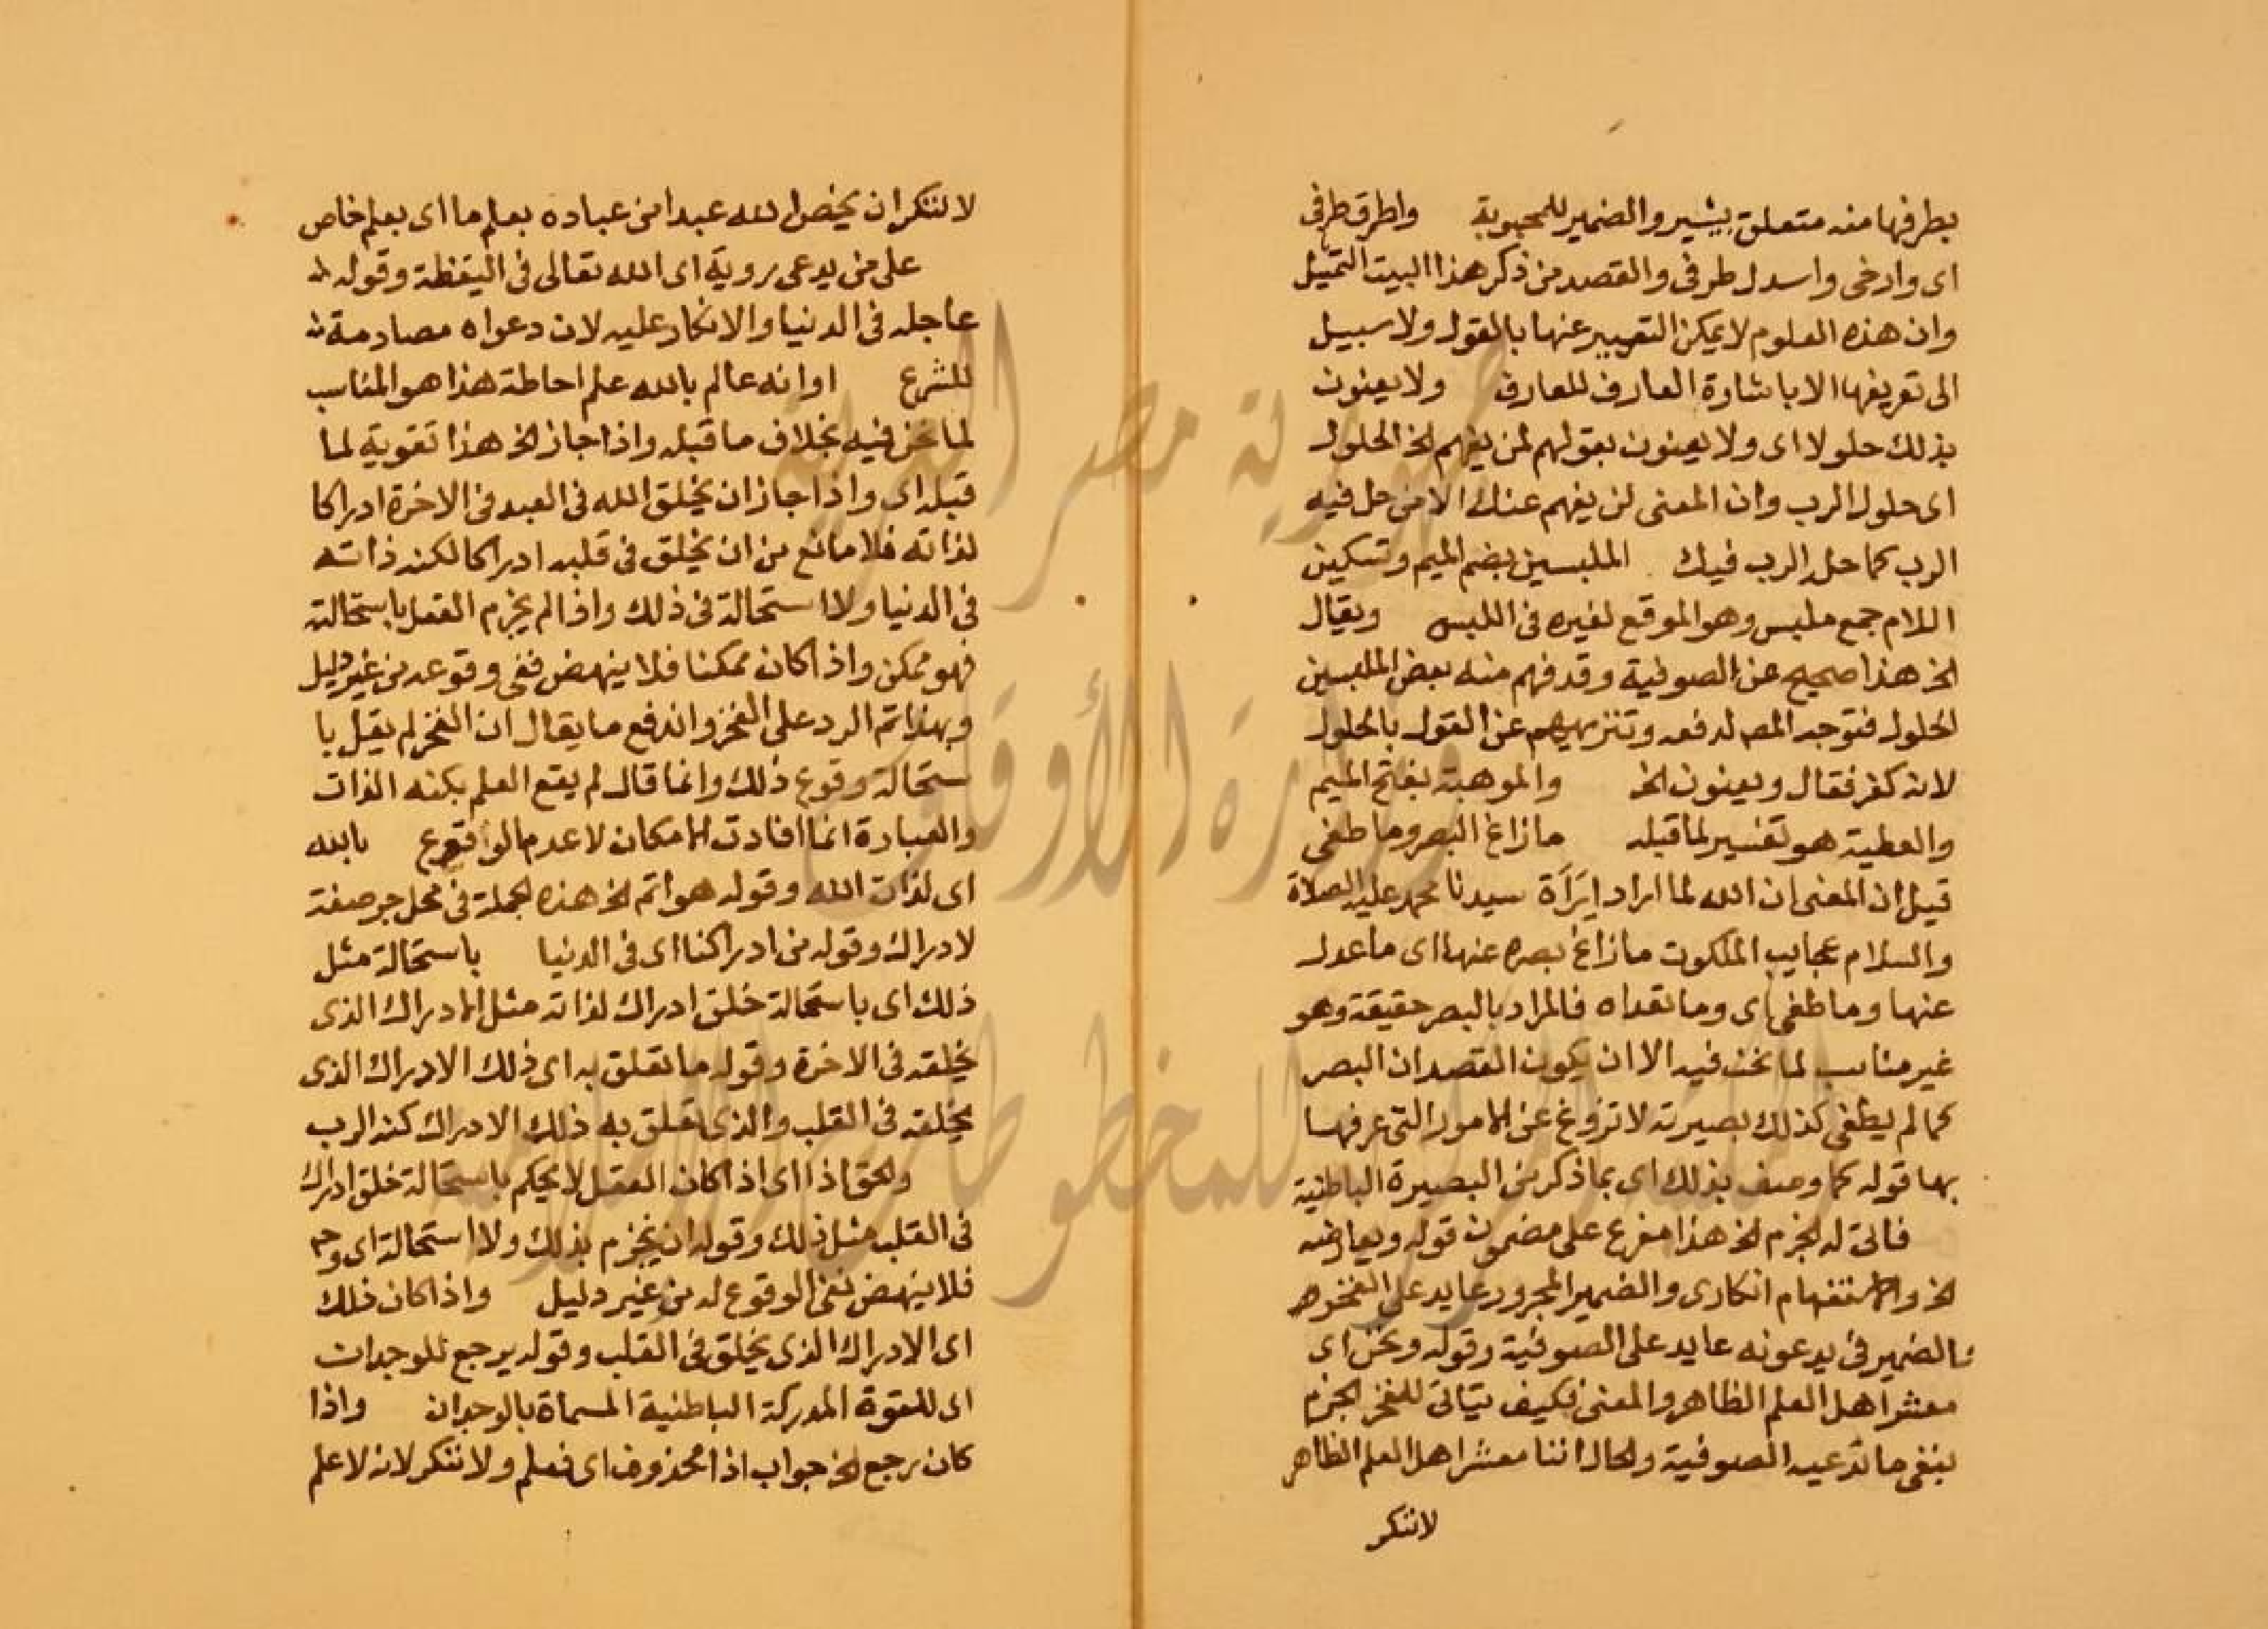 بطرفها منه متعلق بيشير والضمير للمحبوبة واطرق طرفى
اى وارخى واسدل طرفى والقصد من ذكر هذا البيت التمثيل
وان هذه العلوم لا يمكن التعبير عنها بالقول ولا سبيل
الى تعريفها الا باشارة العارف للعارف ولا يعنون
بذلك حلولا اى ولا يعنون بقولهم لمن يفهم الخ الحلول
اى حلول الرب وان المعنى لن يفهم عنك الا من حل فيه
الرب كما حل الرب فيك الملبسين بضم الميم وتسكين
اللام جمع ملبس وهو الموقع لغيره فى اللبس ويقال
الخ هذا صحيح عن الصوفية وقد فهم منه بعض الملبسين
الحلول فتوجه المص لدفعه وتنزيههم عن القول بالحلول
لانه كفر فقال ويعنون الخ والموهبة بفتح الميم
والعطية هو تفسير لما قبله ما زاغ البصر وما طغى
قيل ان المعنى ان الله لما اراد اراة سيدنا محمد عليه الصلاة
والسلام عجايب الملكوت ما زاغ بصره عنها اى ما عدل
عنها وما طغى اى وما تعداه فالمراد بالبصر حقيقة وهو
غير مناسب لما نحن فيه الا ان يكون القصد ان البصر
كما لم يطغى كذلك بصيرته لا تزوغ عن الامور التى عرفها
بها قوله كما وصف بذلك اى بما ذكر من البصيرة الباطنية
فانى له الجزم الخ هذا مفرع على مضمون قوله ويعارضه
الخ والاستفهام انكارى والضمير المجرور عايد على الفخر
والضمير فى يدعونه عايد على الصوفية وقوله ونحن اى
معشر اهل العلم الظاهر والمعنى فكيف يتاتى للفخر الجزم
بنفى ما تدعيه الصوفية والحال اننا معشر اهل العلم الظاهر
لا ننكر
لا ننكر ان يخص الله عبدا من عباده بعلم ما اى بعلم خاص
على من يدعى روية اى الله تعالى فى اليقظة وقوله
عاجله فى الدنيا والانكار عليه لان دعواه مصادمة
للشرع او انه عالم بالله علم احاطة هذا هو المناسب
لما نحن فيه بخلاف ما قبله واذا جاز الخ هذا تقوية لما
قبله اى واذا جاز ان يخلق الله فى العبد فى الاخرة ادراكا
لذاته فلا مانع من ان يخلق فى قلبه ادراكا لكنه ذاته
فى الدنيا ولا استحالة فى ذلك واذا لم يجزم العقل باستحالته
فهو ممكن واذا كان ممكنا فلا ينهض نفى وقوعه من غير دليل
وبهذا تم الرد على الفخر واندفع ما يقال ان الفخر لم يقل با
ستحالة وقوع ذلك وانما قال لم يقع العلم بكنه الذات
والعبارة انما افادت الامكان لا عدم الوقوع بالله
اى لذات الله وقوله هو اتم الخ هذه الجملة فى محل جر صفة
لادراك وقوله من ادراكنا اى فى الدنيا باستحالة مثل
ذلك اى باستحالة خلق ادراك لذاته مثل الادراك الذى
يخلقه فى الاخرة وقوله ما تعلق به اى ذلك الادراك الذى
يخلقه فى القلب والذى تعلق به ذلك الادراك كنه الرب
والحق اذا اى اذا كان العقل لا يحكم باستحالة خلق ادراك
فى القلب مثل ذلك وقوله ان يجزم بذلك ولا استحالة اى وح
فلا ينهض نفى الوقوع له من غير دليل واذا كان ذلك
اى الادراك الذى يخلق فى القلب وقوله يرجع للوجدان
اى للقوة المدركة الباطنية المسماة بالوجدان واذا
كان يرجع الخ جواب اذا محذوف اى فعلم ولا ننكر لانه لا علم
جمهورية مصر العربية
وزارة الأوقاف